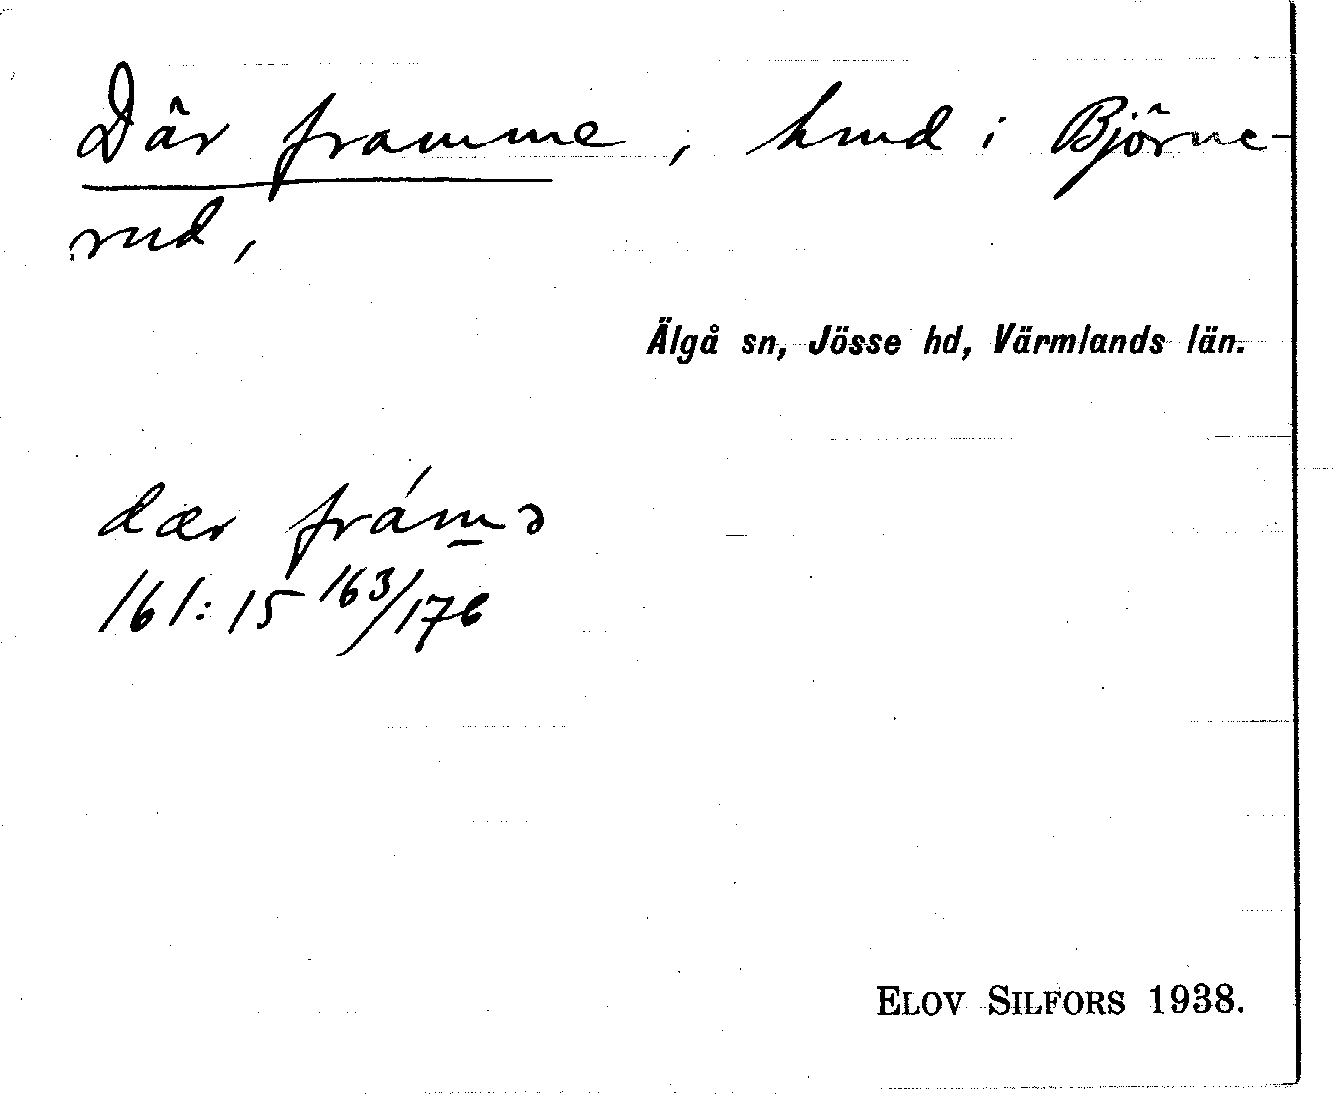 Där framme, hmd i Björne-
rud,
Älgå sn, Jösse hd, Värmlands län.
dær frám̲ə
161:15 163/176
ELOV SILFORS 1938.